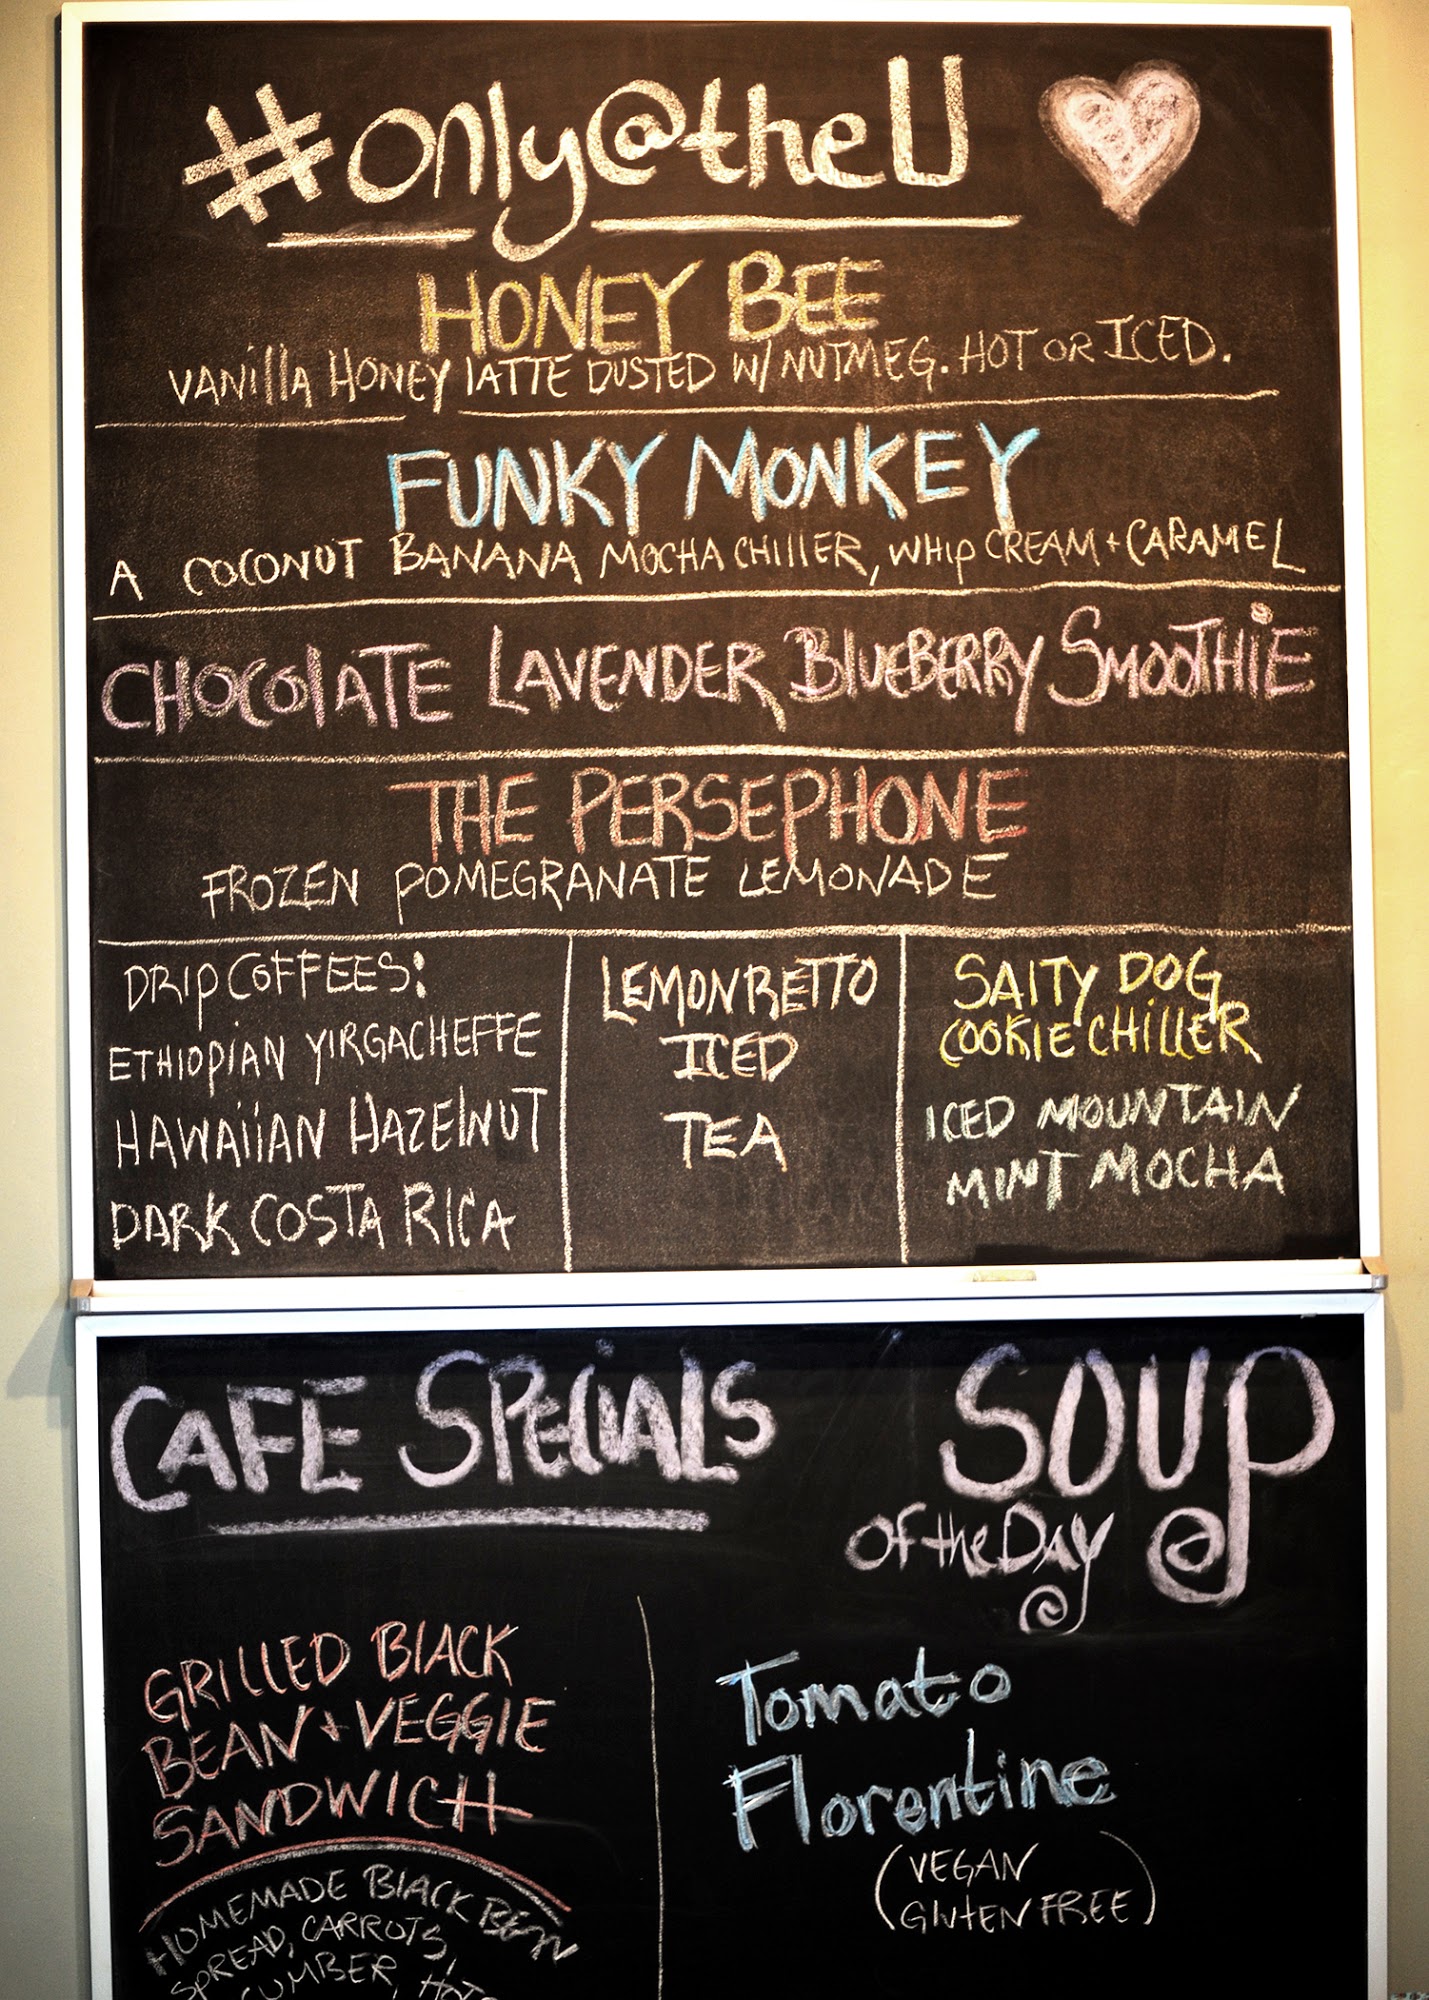 #only@theU
HONEY BEE
VANIllA HONEY lATTE DUSTED W/ NUTMEG. HOT OR ICED.
FUNKY MONKEY
A COCONUT BANANA MOCHA CHIllER, WHIP CREAM + CARAMEL
CHOCOlATE LAVENDER BlUEBERRY SMOOTHiE
THE PERSEPHONE
FROZEN POMEGRANATE LEMONADE
DRIP COFFEES:
ETHIOPIAN YIRGACHEFFE
HAWAiiAN HAZElNUT
DARK COSTA RICA
LEMONRETTO
ICED
TEA
SAlTY DOG
COOKIE CHiLLER
ICED MOUNTAIN
MINT MOCHA
CAFE SPECiAlS
GRILLED BlACK
BEAN + VEGGIE
SANDWICH
HOMEMADE BlACK BEAN
SPREAD, CARROTS,
SOUP
Of the DAY
Tomato
Florentine
(VEGAN
GlUTEN FREE)